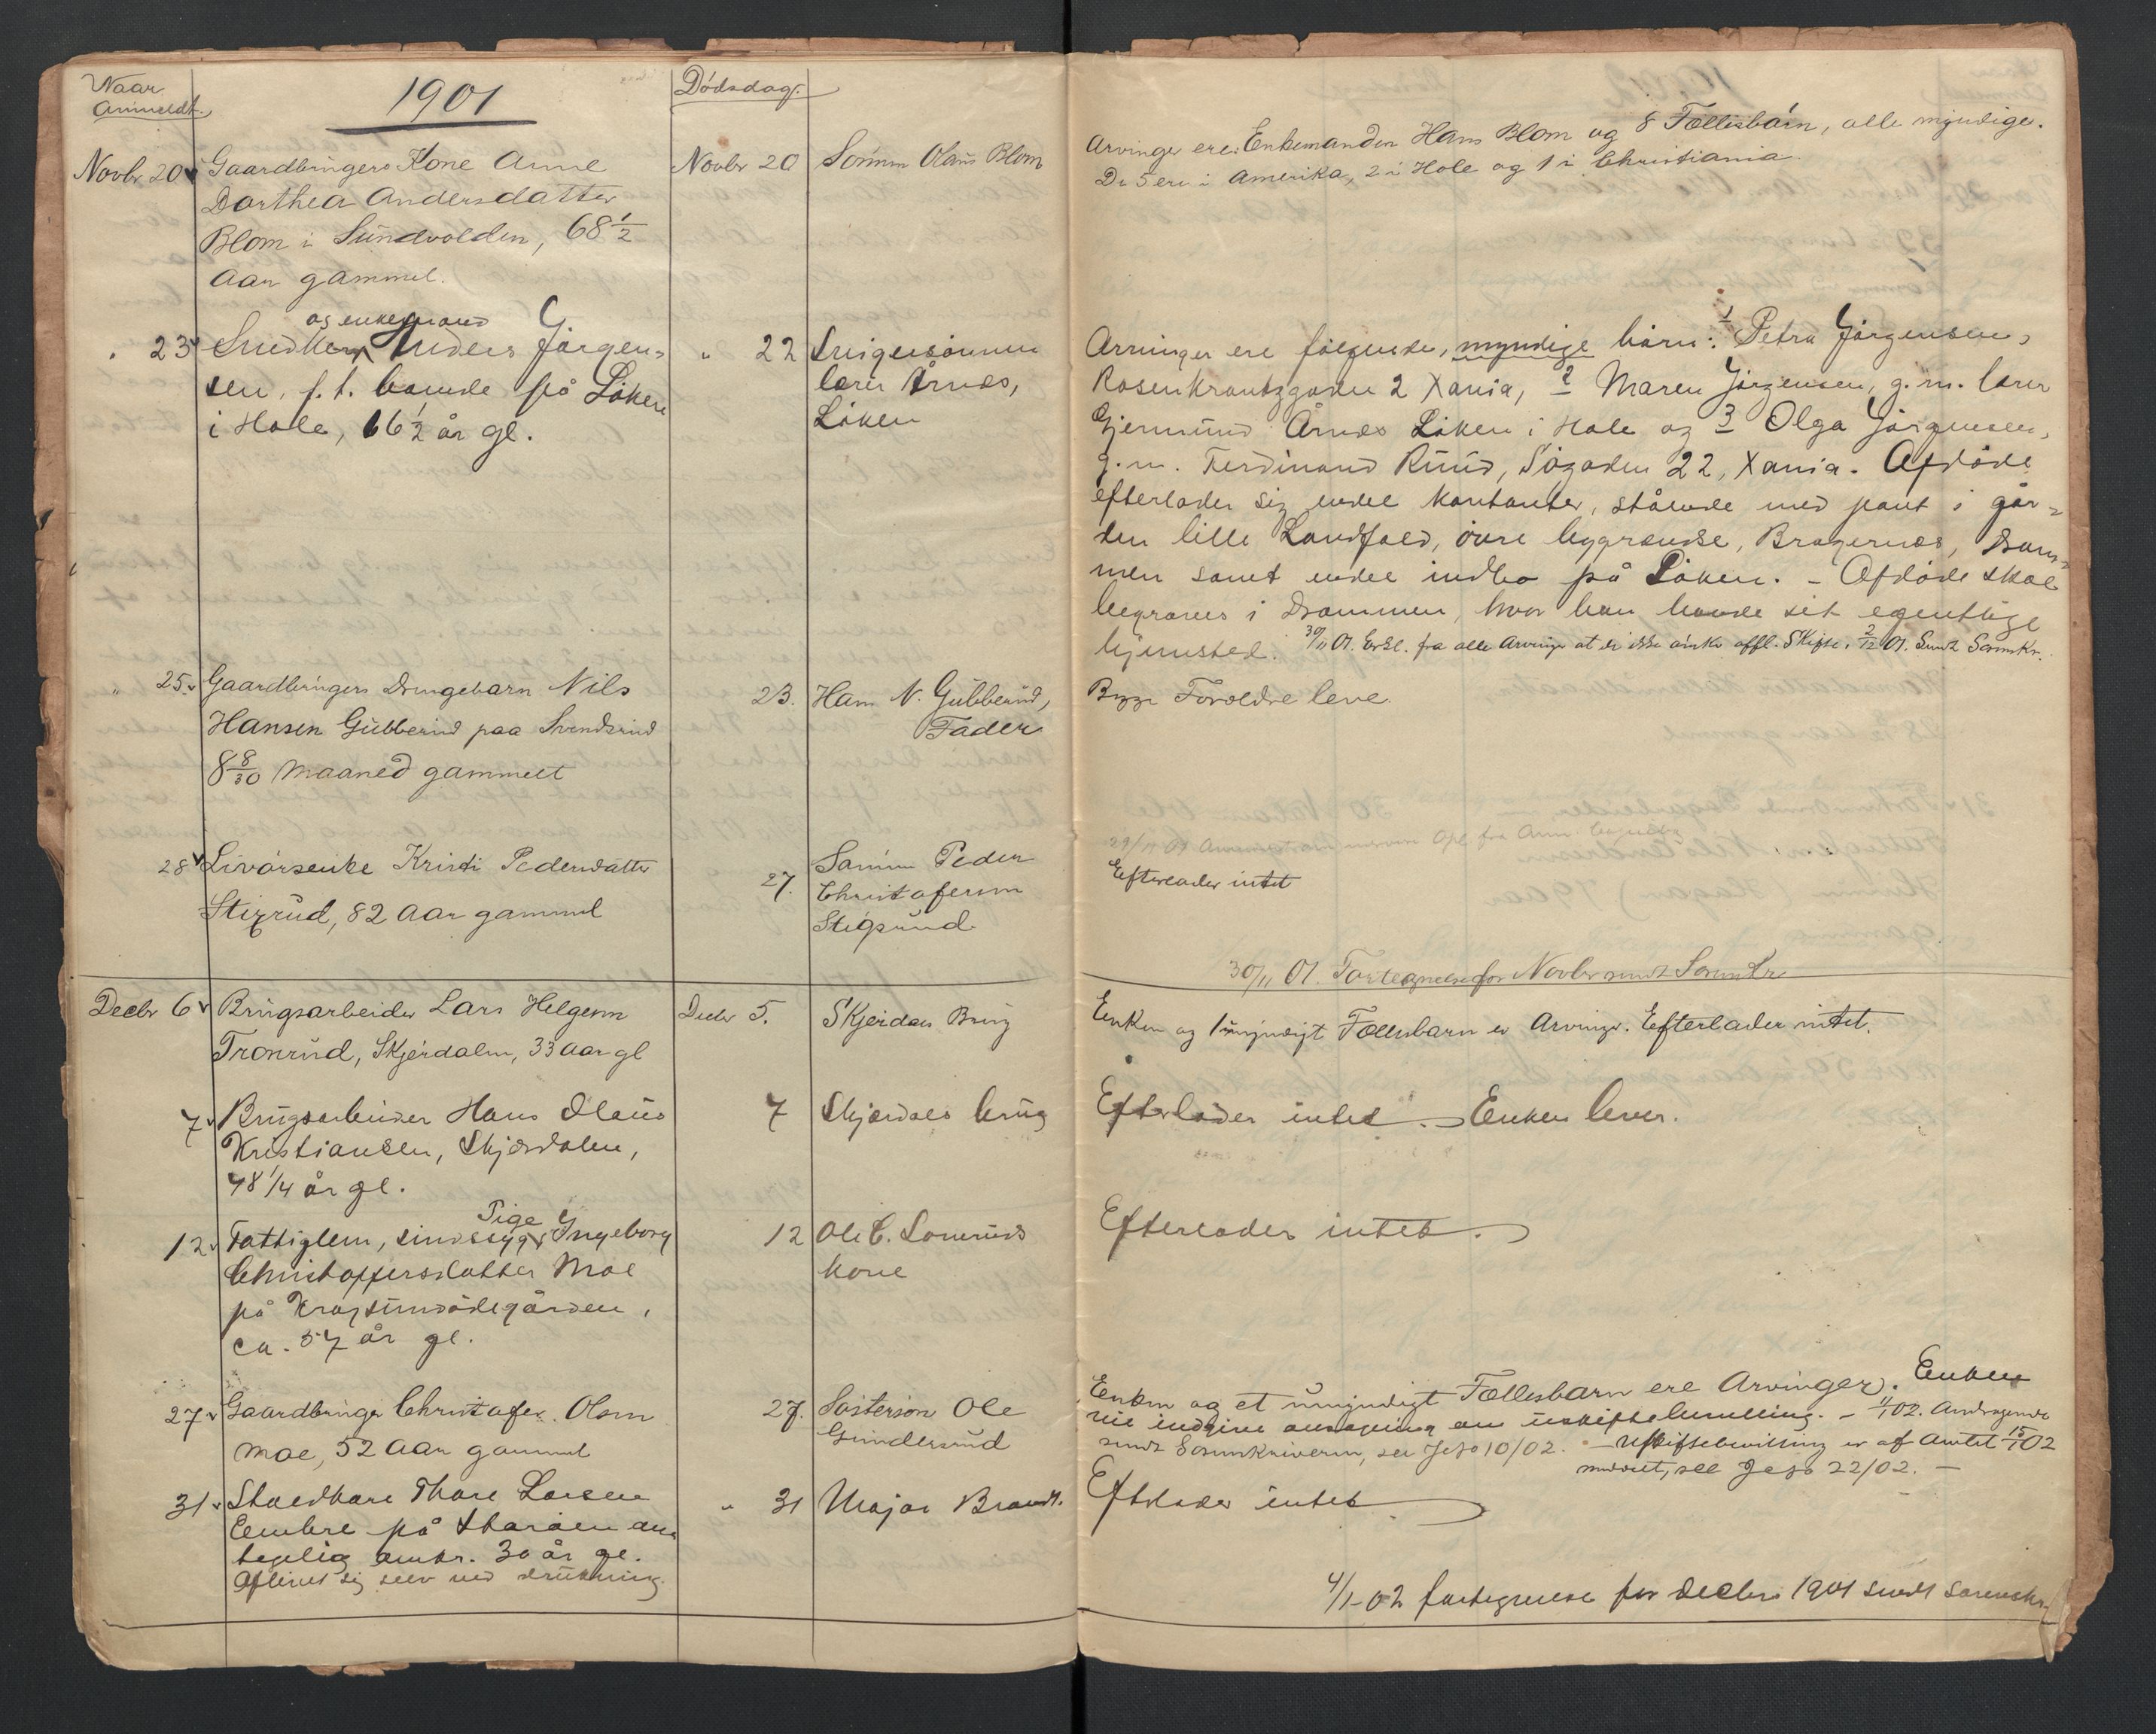 Naar
Anmeldt.
1901
Dödsdag.
Novbr 20
Gaardbrugers Kone Anne
Dorthea Andersdatter
Blom i Sundvolden, 68 1/2
Aar gammel.
Novbr 20
Sönnen Olaus Blom
Arvinger ere: Enkemanden Hans Blom og 8 Fællisbörn, alle myndige.
De 5 ere i Amerika, 2 i Hole og 1 i Christiania.
" 23
og enkemand
Snedker Anders Jörgen-
sen, f. t. boende på Löken
i Hole, 66 1/2 år gl.
" 22
Svigersönnen
lærer Årnes,
Löken
Arvinger ere følgende, myndige börn: 1 Petra Jörgensen,
Rosenkrantzgaden 2 Xania, 2 Maren Jörgensen, g. m. lærer
Gjermund Årnes Löken i Hole og 3 Olga Jörgensen,
g. m. Ferdinand Ruud, Sögaden 22, Xania. Afdöde
efterlader sig endel kontanter, stående med pant i går-
den lille Landfald, övre bygrændse, Bragernes, Dram-
men samt endel indbo på Löken. - Afdöde skal
begraves i Drammen, hvor han havde sit egentlige
hjemsted. 30/11 01. Erkl. fra alle Arvinger at de ikke önske offl. Skifte. 2/12 01. Sendt Sorenskr.
" 25
Gaardbrugers Drengebarn Nils
Hansen Gubberud paa Svendsrud
8 8/30 Maaned gammelt
23.
Hans N. Gubberud,
Fader
Begge Forældre leve.
28
Livörsenke Kristi Pedersdatter
Stixrud, 82 Aar gammel
27.
Sönnen Peder
Christofersen
Stigsrud
29/11 01
Efterlader intet
30/11 01. Fortegnelse for Novbr sendt Sorenskr
Decbr 6
Brugsarbeider Lars Helgesen
Tronrud, Skjerdalen, 33 Aar gl
Decbr 5.
Skjerdals Brug
Enken og 1 umyndigt Fællesbarn er Arvinger. Efterlader intet.
7
Brugsarbeider Hans Olaus
Kristiansen, Skjærdalen,
48 1/4 år gl.
7
Skjærdals brug
Efterlader intet. Enken lever.
12
Pige
Fattiglem, sindssyg Ingeborg
Christoffersdatter Moe
på Kragstundödegården,
ca. 57 år gl.
12
Ole C. Lomruds
kone
Efterlader intet.
27
Gaardbruger Christofer Olsen
Moe, 52 Aar gammel
27.
Søstersön Ole
Gundersrud
Enken og et umyndigt Fællesbarn ere Arvinger. Enken
vil indgive ansøgning om uskiftebevilling. - 11/1 02. Andragende
sendt Sorenskriveren, see Jexp 10/02. - Uskiftebevilling er af Amtet 15/1 02
meddelt, see Jexp 22/02. -
31
Skædkare Thore Larsen
Lembre på Storöen an-
tagelig omkr. 30 år gl.
Aflivet sig selv ved drukning.
" 31
Major Brandt.
Efterlader intet
4/1-02 fortegnelse for Decbr. 1901 sendt sorenskr.